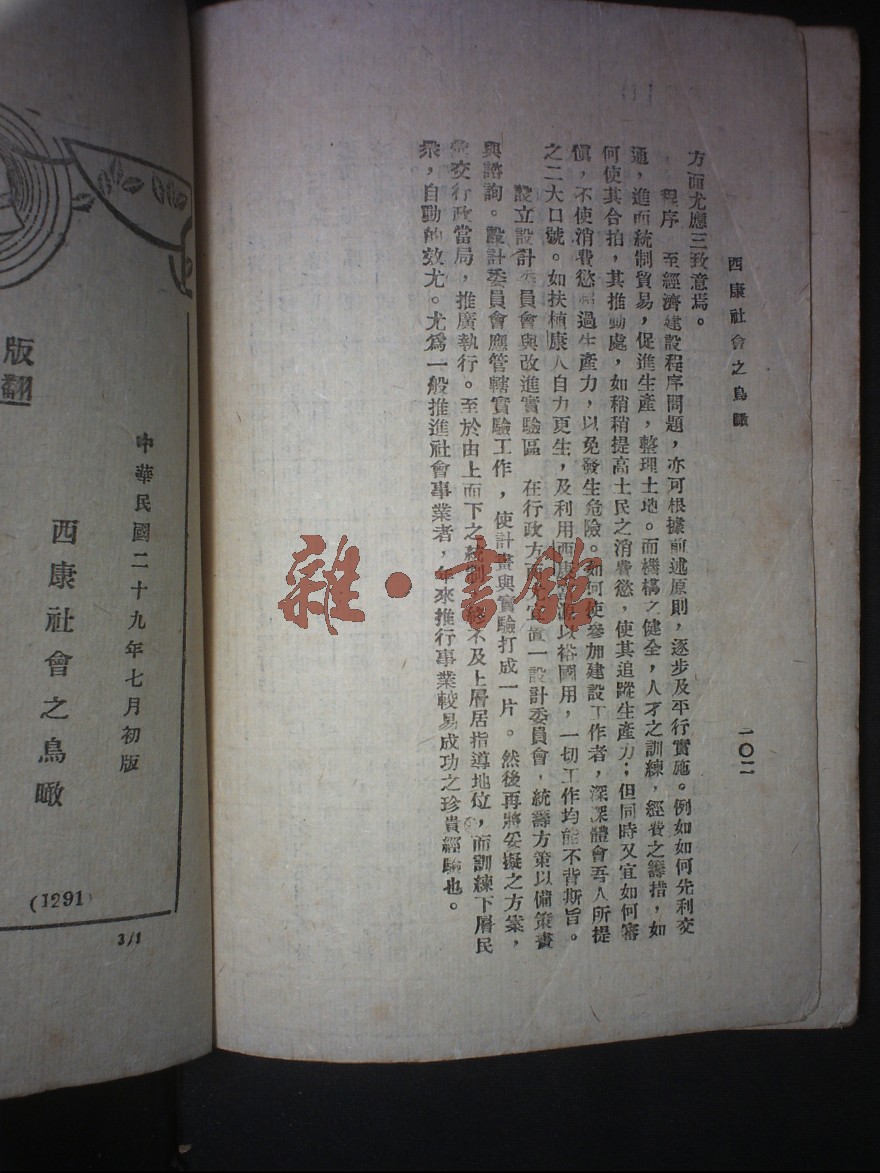 西康社會之鳥瞰
一〇二
方面尤應三致意焉。
程序　至經濟建設程序問題，亦可根據前述原則，逐步及平行實施。例如如何先利交
通，進而統制貿易，促進生產，整理土地。而機構之健全，人才之訓練，經費之籌措，如
何使其合拍，其推動處，如稍稍提高土民之消費慾，使其追蹤生產力；但同時又宜如何審
愼，不使消費慾超過生產力，以免發生危險。如何使參加建設工作者，深深體會吾人所提
之二大口號。如扶植康人自力更生，及利用西康資源以裕國用，一切工作均能不背斯旨。
設立設計委員會與改進實驗區　在行政方面宜置一設計委員會，統籌方策以備策畫
與諮詢。設計委員會應管轄實驗工作，使計畫與實驗打成一片。然後再將妥擬之方案，
交行政當局，推廣執行。至於由上而下之統制，不及上層居指導地位，而訓練下層民
衆，自動的效尤。尤爲一般推進社會事業者，年來推行事業較易成功之珍貴經驗也。
版
翻
中華民國二十九年七月初版
西康社會之鳥瞰
(1291)
3/1
雜·書館